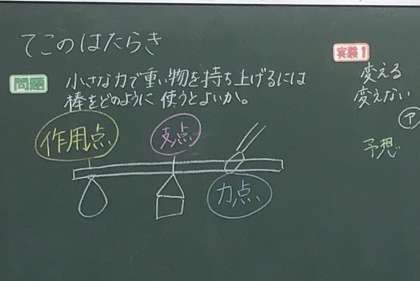 てこのはたらき
問題 小さな力で重い物を持ち上げるには
棒をどのように使うとよいか。
作用点
支点
力点
実験1
変える
変えない
ア
予想